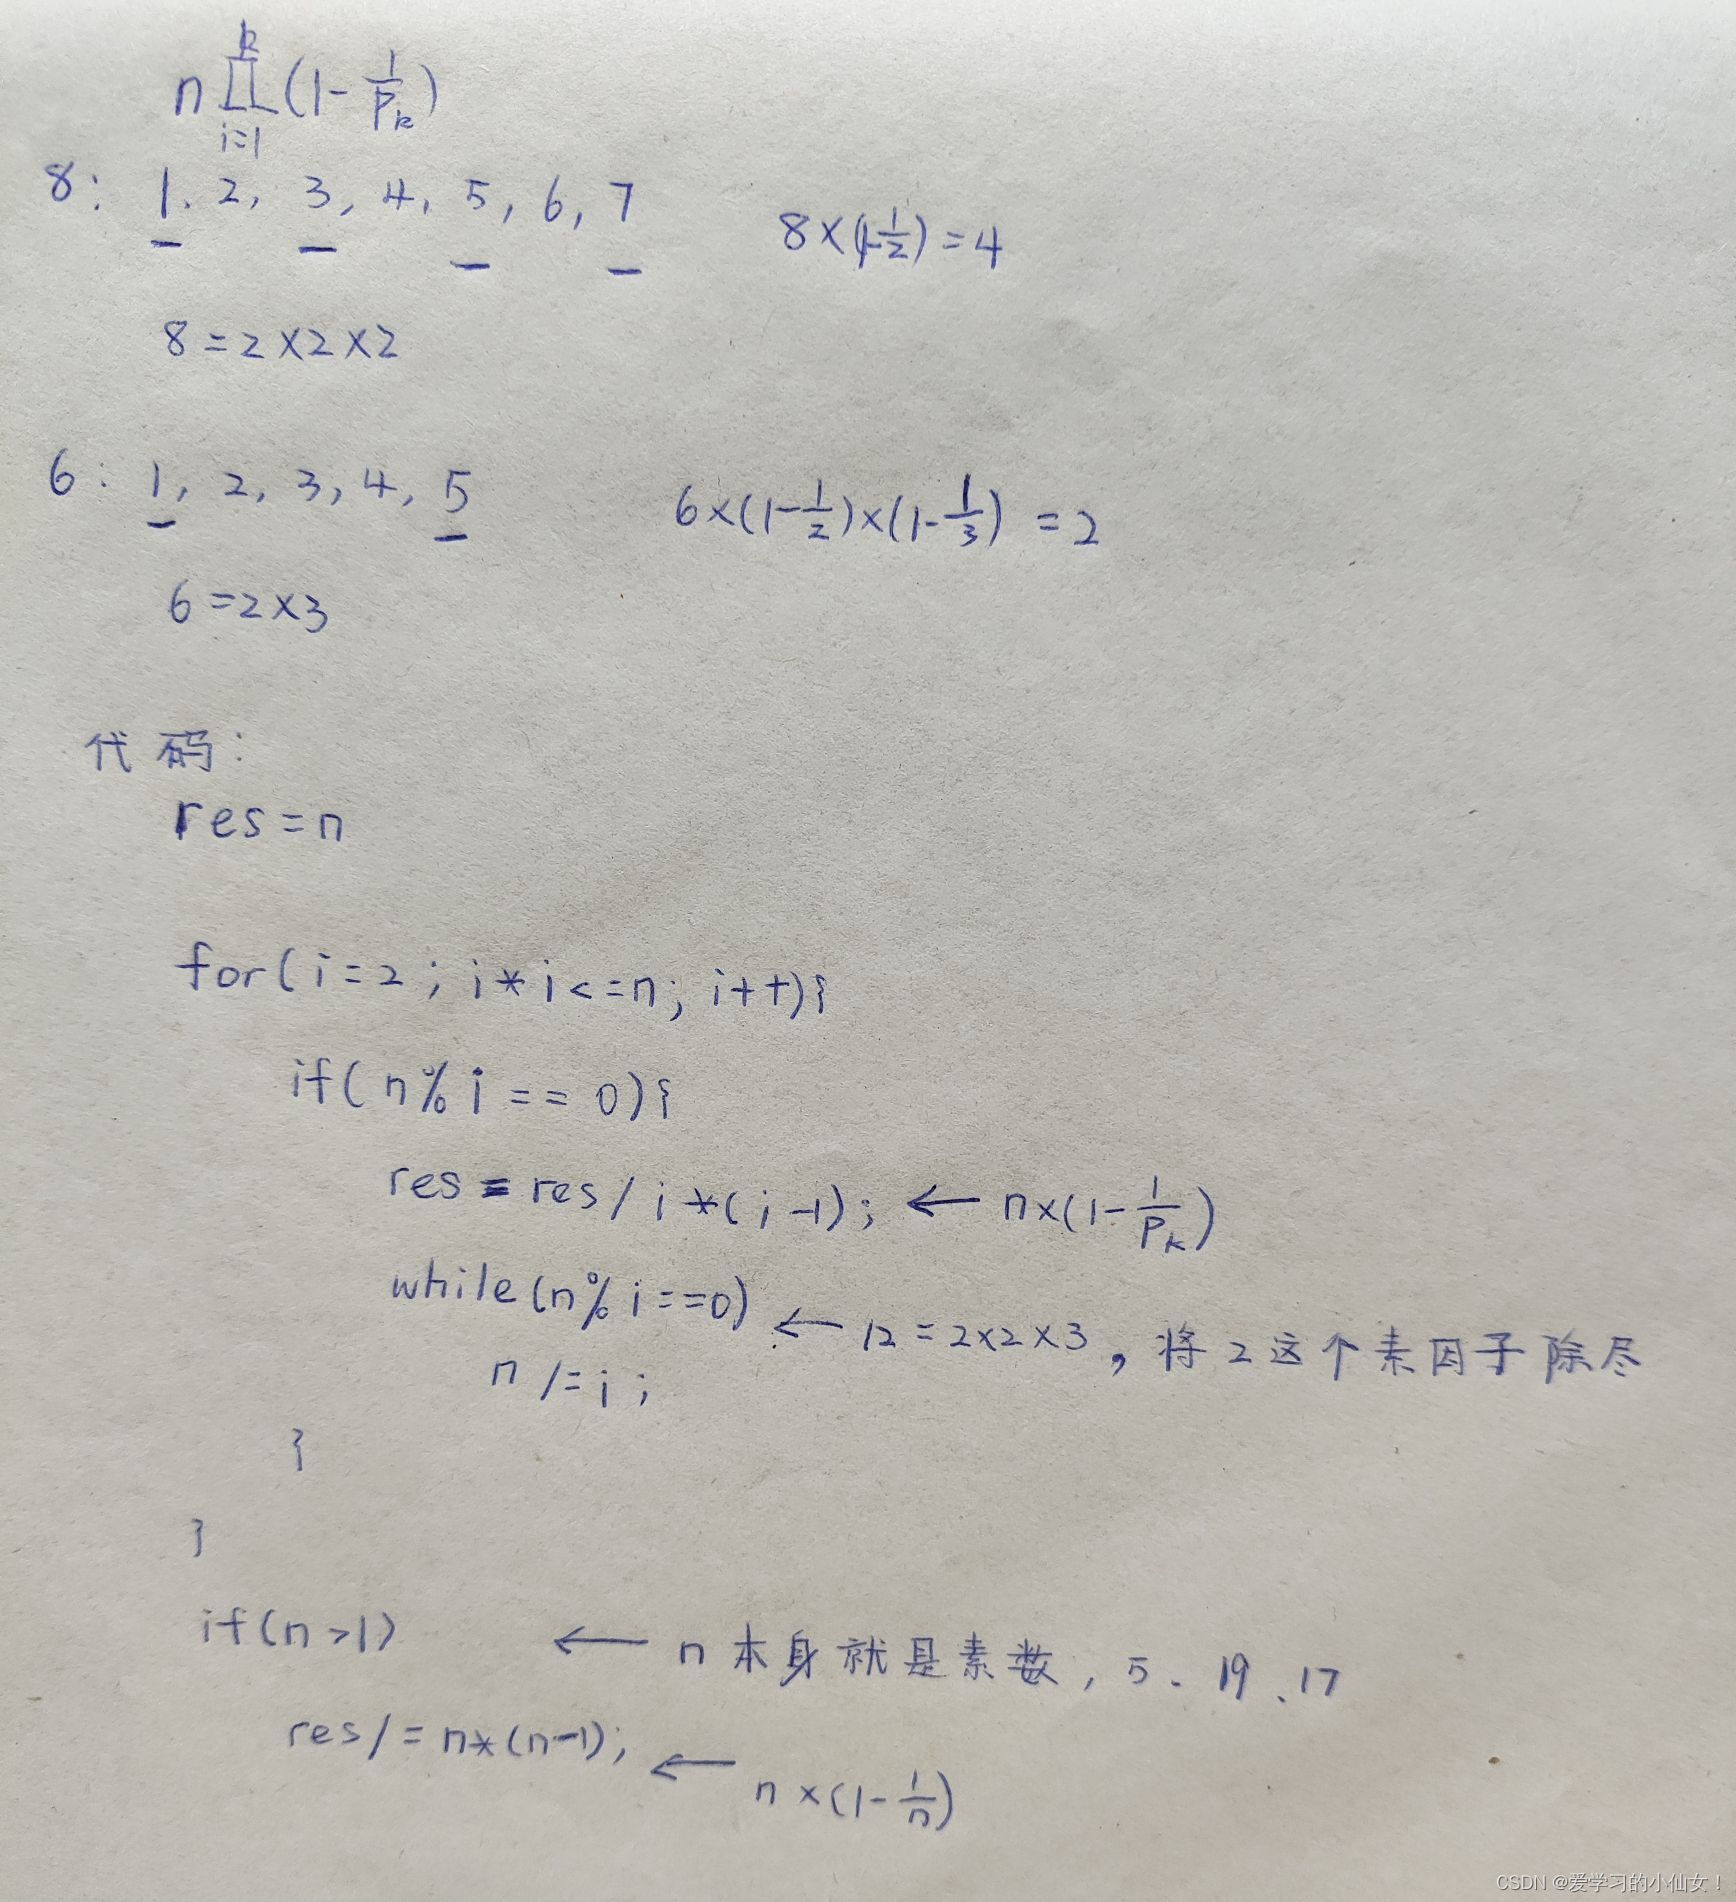 n∏(1-1/Pk) k i=1
8: 1、2, 3, 4, 5, 6, 7 8×(1-1/2)=4
8=2×2×2
6: 1, 2, 3, 4, 5 6×(1-1/2)×(1-1/3) =2
6=2×3
代码:
res=n
for(i=2; i*i<=n; i++){
if(n%i == 0){
res=res/i*(i-1); ← n×(1-1/Pk)
while(n%i==0) ← 12=2×2×3, 将2这个素因子除尽
n /=i;
}
}
if(n>1) ← n本身就是素数, 5、19、17
res/=n*(n-1); ← n×(1-1/n)
CSDN @爱学习的小仙女!